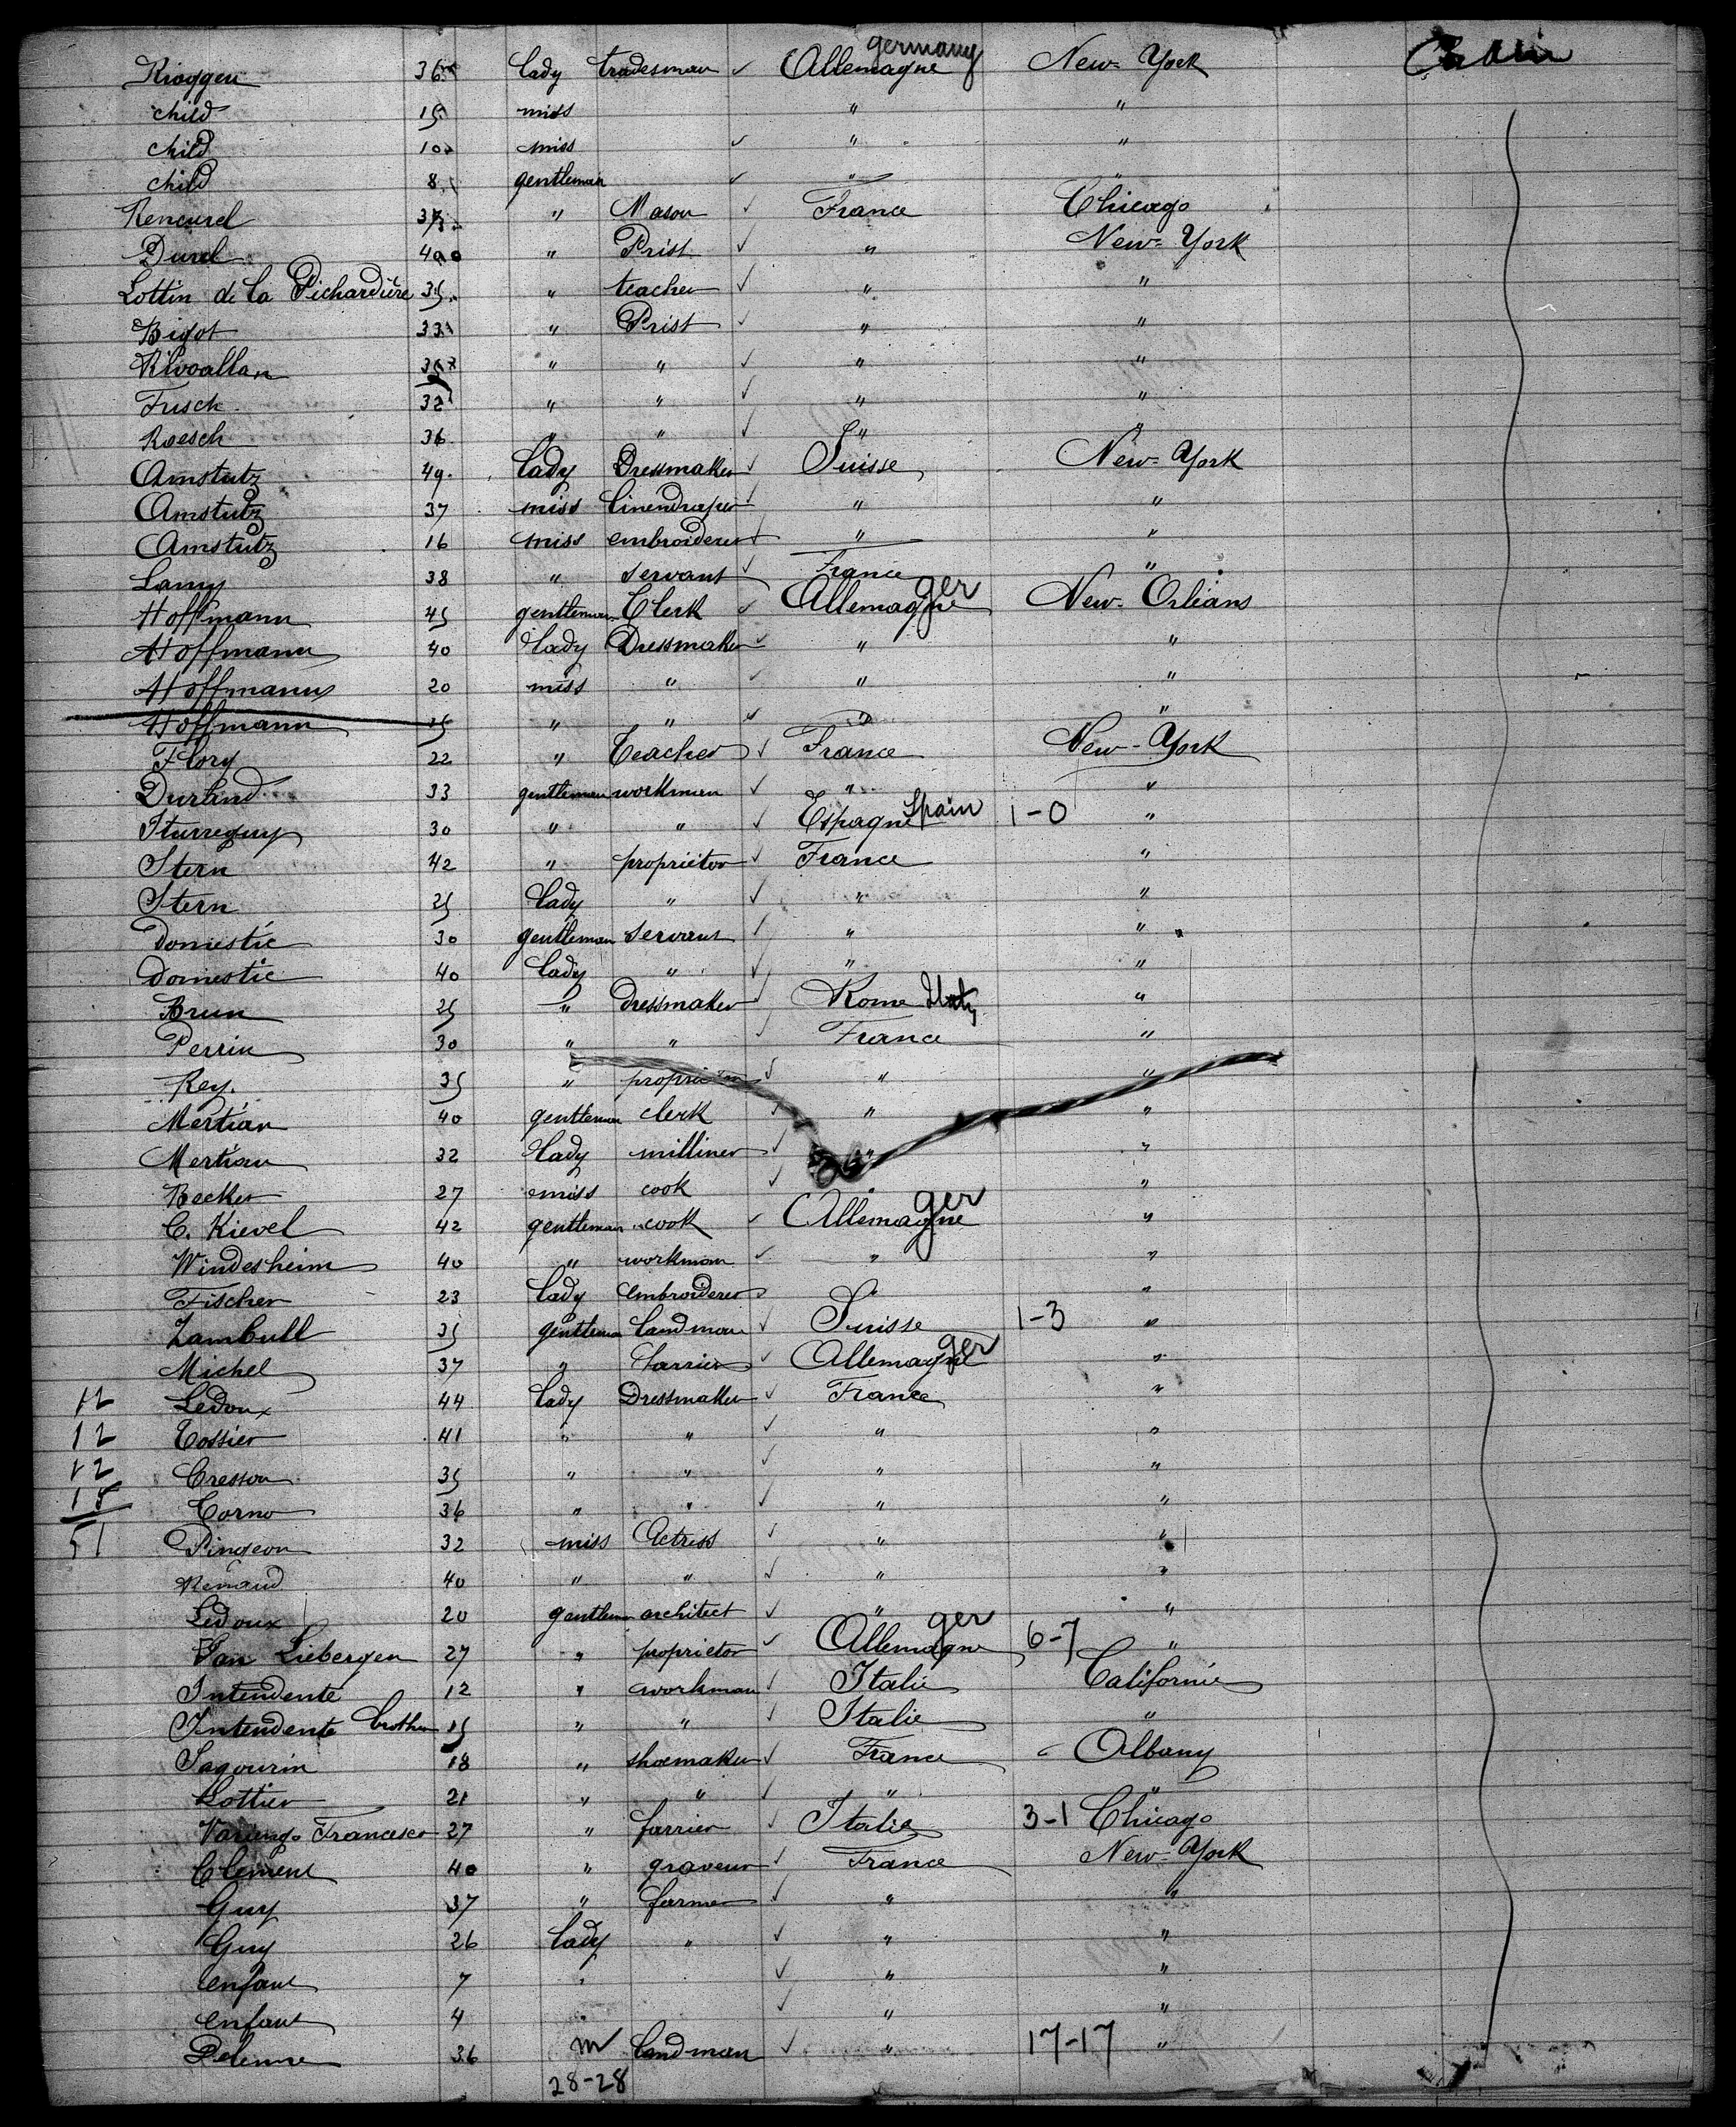 Kroggen 36 lady tradesman ✓ Allemagne germany New-York
child 15 miss " "
child 10 miss ✓ " "
child 8 gentleman ✓ " "
Rencurel " Mason ✓ France Chicago
Durel 40 " Prist ✓ " New-York
Lottin de la Pichardière 35 " teacher ✓ " "
Bigot 33 " Prist ✓ " "
Rivoallan 35 " " ✓ " "
Frisch 32 " " ✓ " "
Roesch 36 " " ✓ " "
Amstutz 49 lady Dressmaker ✓ Suisse New-York
Amstutz 37 miss linendraper ✓ " "
Amstutz 16 miss embroiderer ✓ " "
Lamy 38 " servant ✓ France "
Hoffmann 45 gentleman Clerk ✓ Allemagne ger New-Orleans
Hoffmann 40 lady Dressmaker ✓ " "
Hoffmann 20 miss " ✓ " "
Hoffmann 15 " " ✓ " "
Flory 22 " Teacher ✓ France New-York
Durand 33 gentleman workman ✓ " "
Iturreguy 30 " " ✓ Espagne Spain 1-0 "
Stern 42 " proprietor ✓ France "
Stern 25 lady " ✓ " "
Domestic 30 gentleman servant ✓ " "
Domestic 40 lady " ✓ " "
Brun 25 " dressmaker ✓ Rome Italy "
Perrin 30 " " ✓ France "
Rey. 35 " proprietor ✓ " "
Mertian 40 gentleman clerk ✓ " "
Mertian 32 lady milliner ✓ " "
Becker 27 miss cook ✓ " "
C. Kievel 42 gentleman cook ✓ Allemagne ger "
Windesheim 40 " workman ✓ " "
Fischer 23 lady embroiderer " "
Zambull 35 gentleman landman ✓ Suisse 1-3 "
Michel 37 " farrier ✓ Allemagne ger "
12 Ledoux 44 lady Dressmaker ✓ France "
12 Tossier 41 " " ✓ " "
12 Cresson 35 " " ✓ " "
15 Corno 36 " " ✓ " "
51 Pingeon 32 miss Actriss ✓ " "
Renaud 40 " " ✓ " "
Ledoux 20 gentleman architect ✓ " "
Van Liebergen 27 " proprietor ✓ Allemagne ger 6-7 "
Intendente 12 " workman ✓ Italie Californie
Intendente brother 15 " " ✓ Italie "
Sagourin 18 " shoemaker ✓ France Albany
Lottier 21 " " ✓ " "
Varengo Francesco 27 " farrier ✓ Italie 3-1 Chicago
Clement 40 " graveur ✓ France New-York
Guy 37 " farmer ✓ " "
Guy 26 lady " ✓ " "
enfant 7 " ✓ " "
enfant 4 " ✓ " "
36 m landman ✓ " 17-17 "
28-28